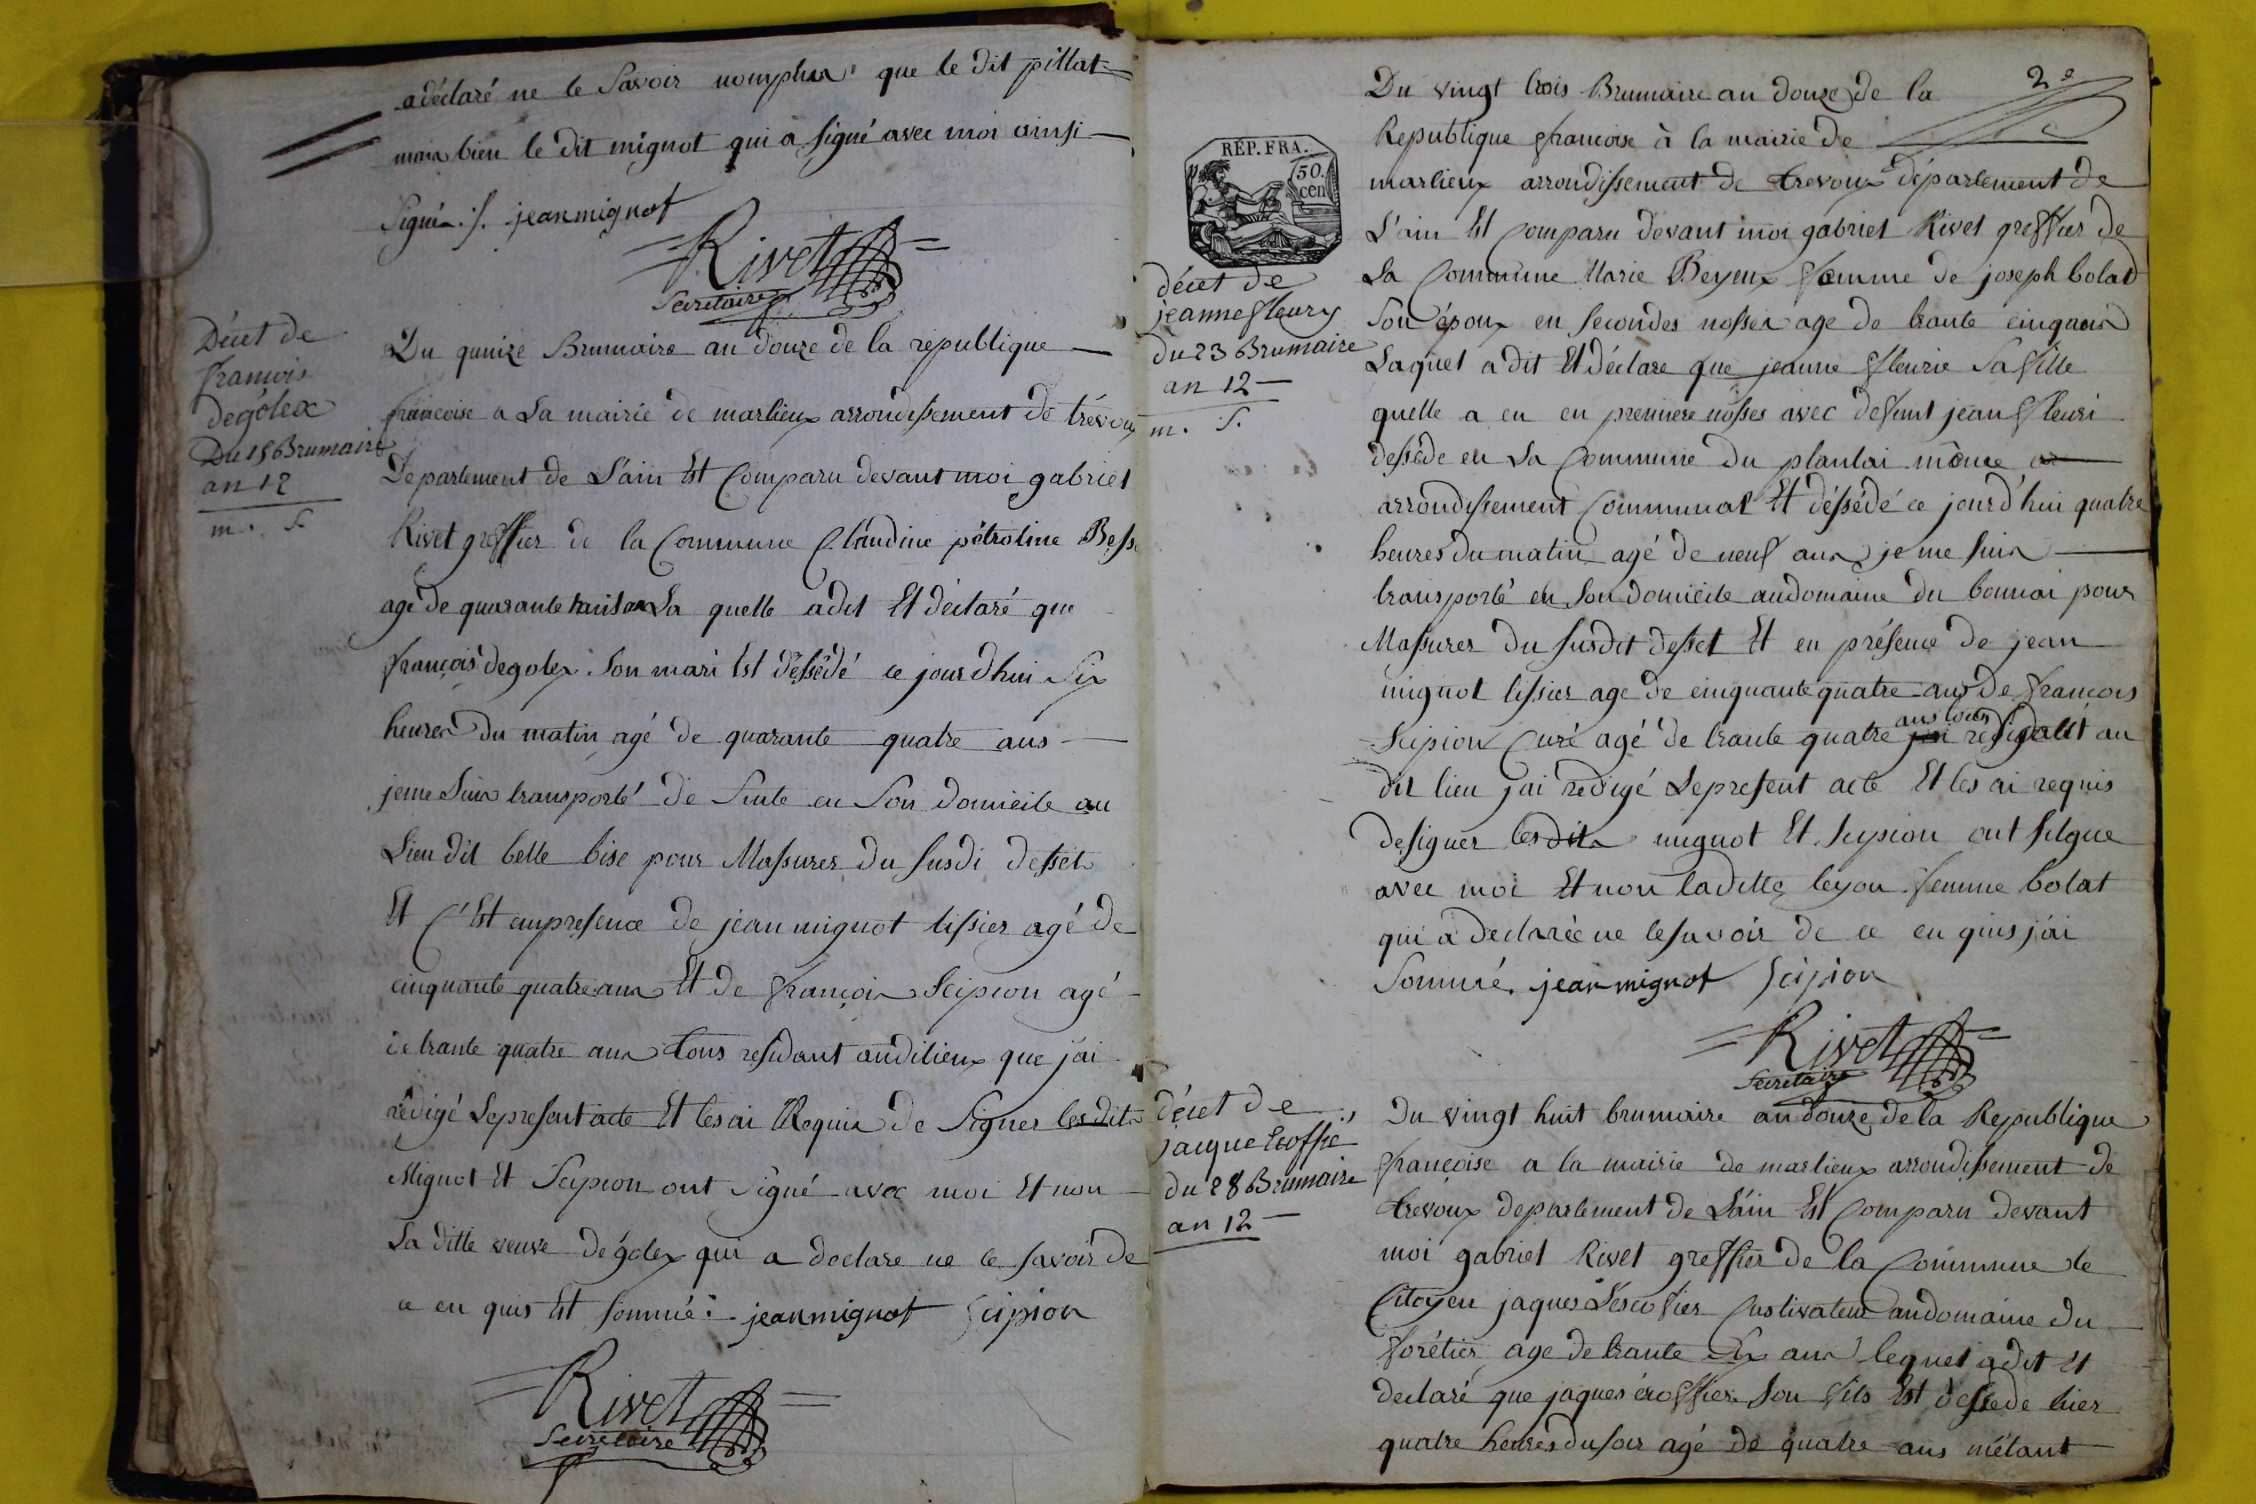 a déclaré ne le Savoir nomplus que le dit pillat
mais bien le dit mignot qui a signé avec moi ainsi
Signés ./. jean mignot
Rivet
Secretaire
Décet de
françois
degolex
Du 15 Brumaire
an 12
m. S.
Du quinze Brumaire an douze de la republique
françoise a La mairie de marlieux arrondissement de trévoux
Departement de L'ain Est Comparu devant moi gabriel
Rivet greffier de la Commune Claudine pétroline Besse
agé de quarante huit ans La quelle a dit Et déclaré que
françois degolex Son mari Est dessédé ce jourdhui Six
heures Du matin agé de quarante quatre ans
je me Suis transporté de Suite en Son domicile au
Lieu dit belle bise pour Massurer du susdi desset
Et C'Est en presence de jean mignot tissier agé de
cinquante quatre ans Et de françois Scipion agé
de trante quatre ans tous residant audilieux que j'ai
rédigé Le present acte Et les ai Requis de Signer les dits
Mignot Et Scipion ont Signé avec moi Et non
La ditte veuve dégolex qui a declare ne le savoir de
ce en quis Est sommé : jean mignot Scipion
Rivet
Secretaire
2e
RÉP. FRA.
50.
cen
décet de
jeanne fleury
du 23 Brumaire
an 12
m. S.
Du vingt trois Brumaire an douze de la
Republique françoise à la mairie de
marlieux arrondissement de trevoux département de
L'ain Est Comparu devant moi gabriel Rivet greffier de
La Commune Marie Beyeux femme de joseph bolat
Son époux en secondes nosses age de trante cinq ans
Laquel a dit Et déclare que jeanne fleurie Sa fille
quelle a eu en premiere nosses avec defunt jean fleuri
dessêde en La Commune du plantai même
arrondissement Communal Et déssédé ce jourd'hui quatre
heures du matin agé de neuf ans je me suis
transporté en Son domicile au domaine du bonnai pour
Massurer du susdit desset Et en présence de jean
mignot tissier age de cinquante quatre ans de françois
Scipion Curé agé de trante quatre ans tous residant au
dit lieu j'ai rédigé Le present acte Et les ai requis
de signer les dits mignot Et Scipion ont silgue
avec moi Et non laditte beyou femme bolat
qui a declarée ne le savoir de ce en quis j'ai
Sommé. jean mignot Scipion
Rivet
Secretaire
décet de
jacque Ecoffie
du 28 Brumaire
an 12
Du vingt huit brumaire an douze de la Republique
françoise a la mairie de marlieux arrondissement de
trevoux departement de L'ain Est Comparu devant
moi gabriel Rivet greffier de la Commune le
Citoyen jaques Lescofier Custivateur au domaine du
forétier age de trante Six ans lequel a dit Et
declaré que jaques écoffier Son fils Est dessede hier
quatre heures du soir agé de quatre ans m'étant